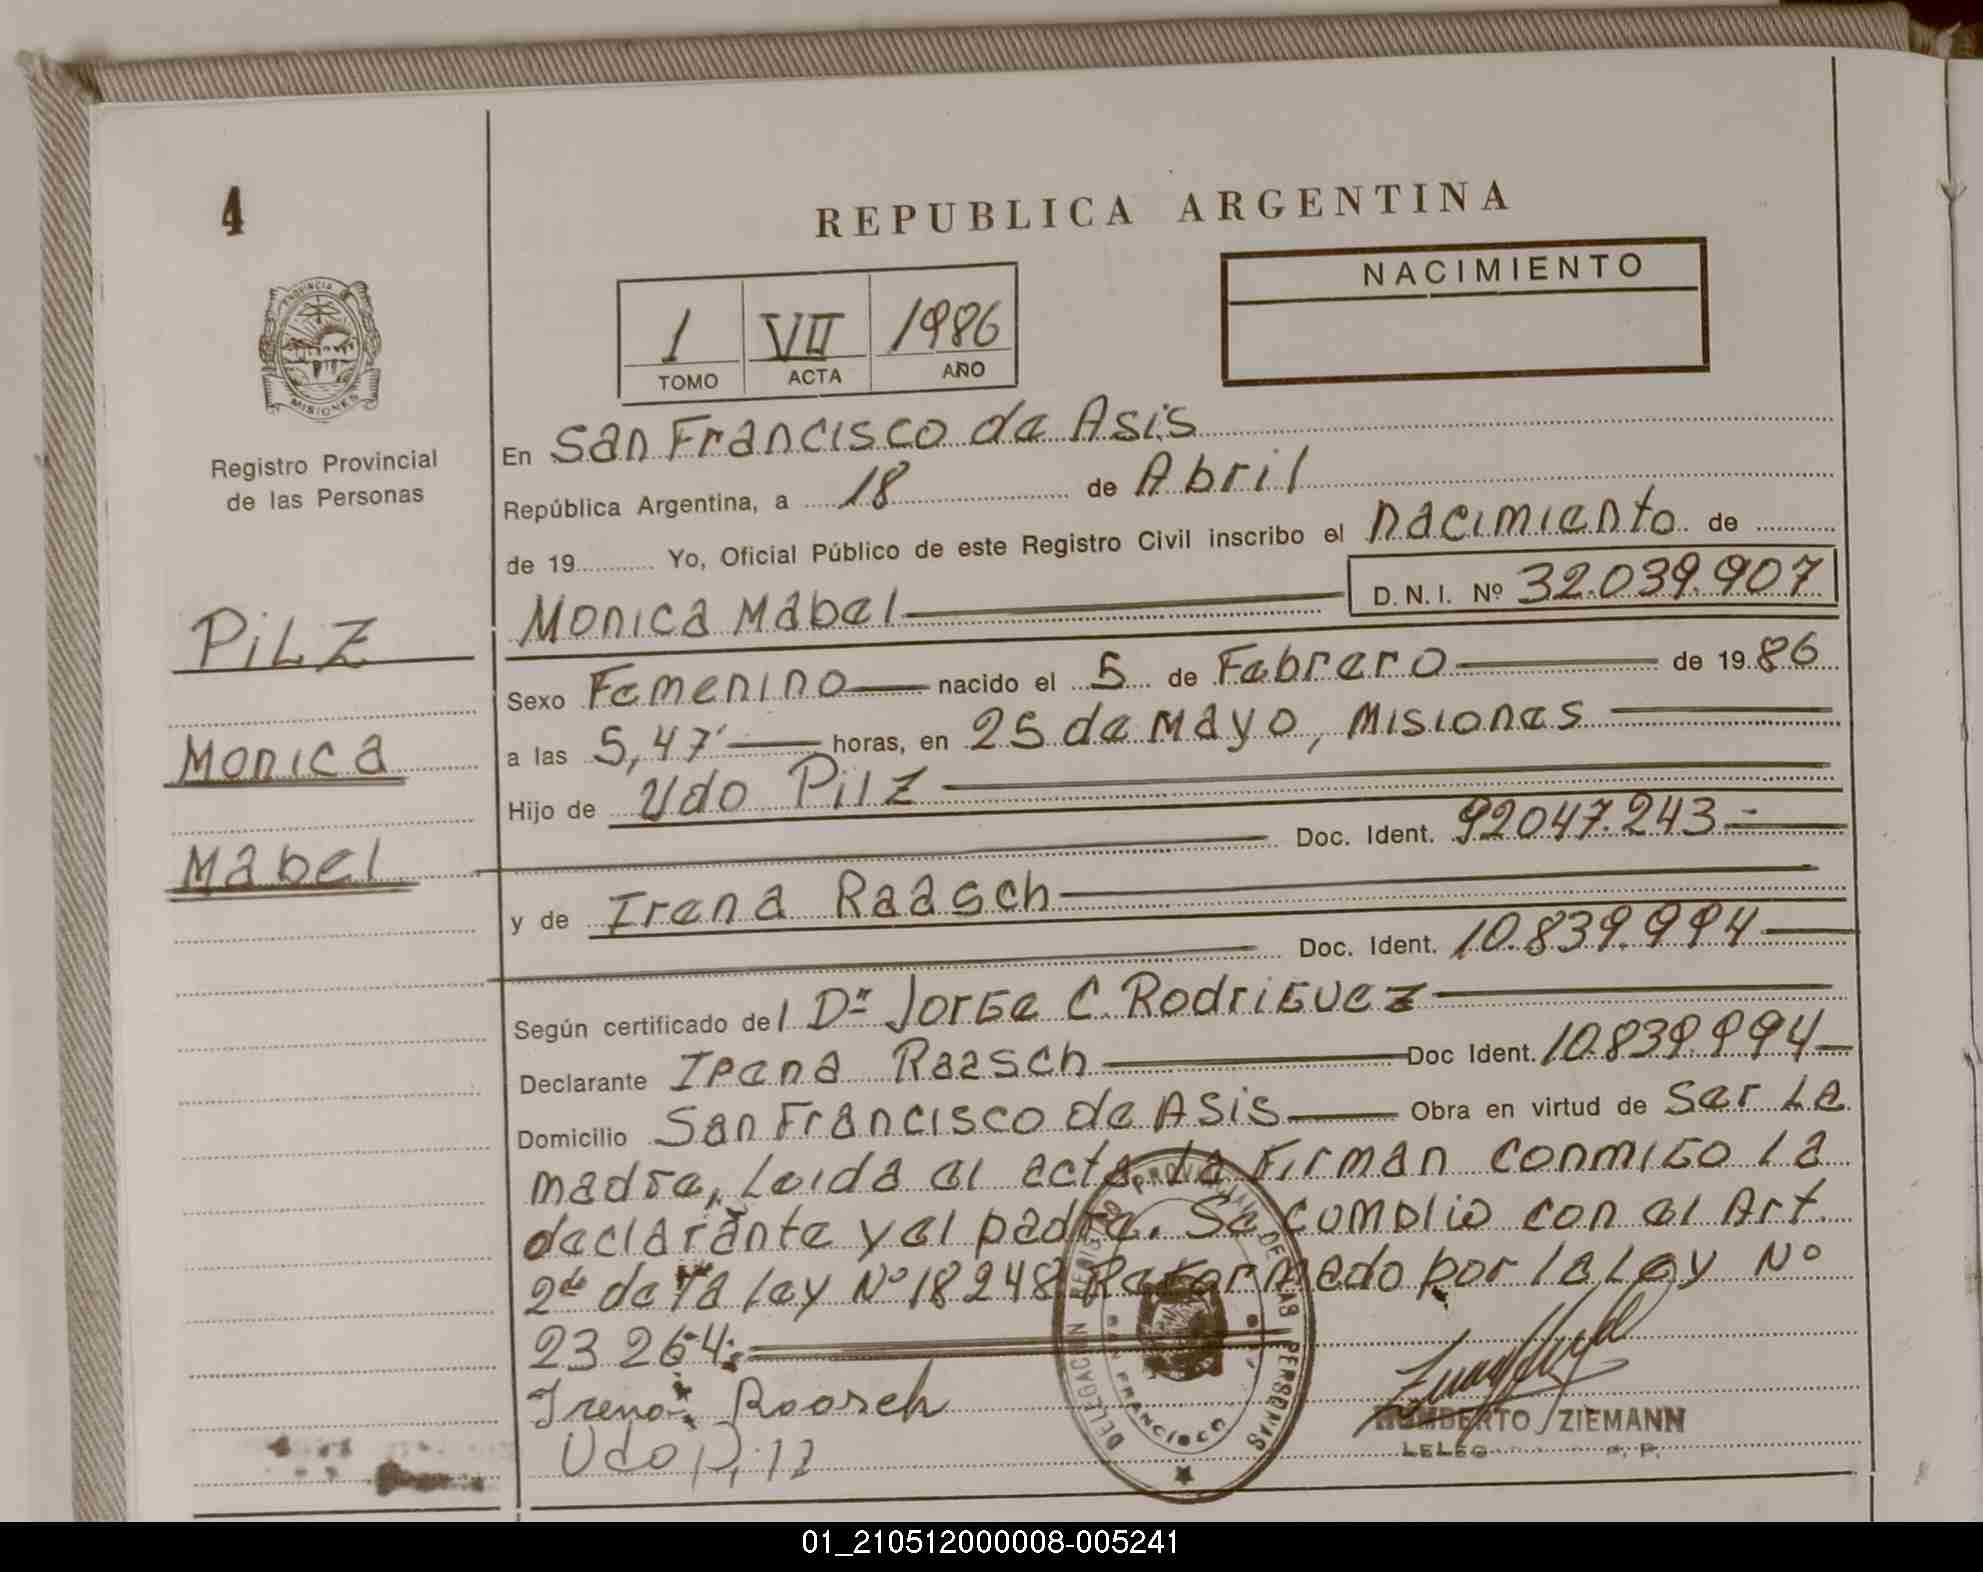 4
REPUBLICA ARGENTINA
NACIMIENTO
1 VII 1986
TOMO ACTA AÑO
PROVINCIA
MISIONES
Registro Provincial
de las Personas
En San Francisco de Asis
República Argentina, a 18 de Abril
de 19 Yo, Oficial Público de este Registro Civil inscribo el nacimiento de
Monica Mabel D.N.I. Nº 32.039.907
PILZ
Monica
Mabel
Sexo Femenino nacido el 5 de Febrero de 1986
a las 5,47' horas, en 25 de Mayo, Misiones
Hijo de Udo Pilz
Doc. Ident. 92047.243.-
y de Irena Raasch
Doc. Ident. 10.839.994
Según certificado del Dr Jorge C. Rodriguez
Declarante Irena Raasch Doc Ident. 10.839.994
Domicilio San Francisco de Asis Obra en virtud de ser La
madre, Leida el acta La Firman conmigo la
declarante y el padre. Se cumplio con el Art.
2do de la Ley Nº 18248 Reformado por la Ley Nº
23264.
Irena Raasch
Udo Pilz
DELEGACION REGISTRO PROVINCIAL DE LAS PERSONAS
SAN FRANCISCO
HUMBERTO ZIEMANN
01_210512000008-005241